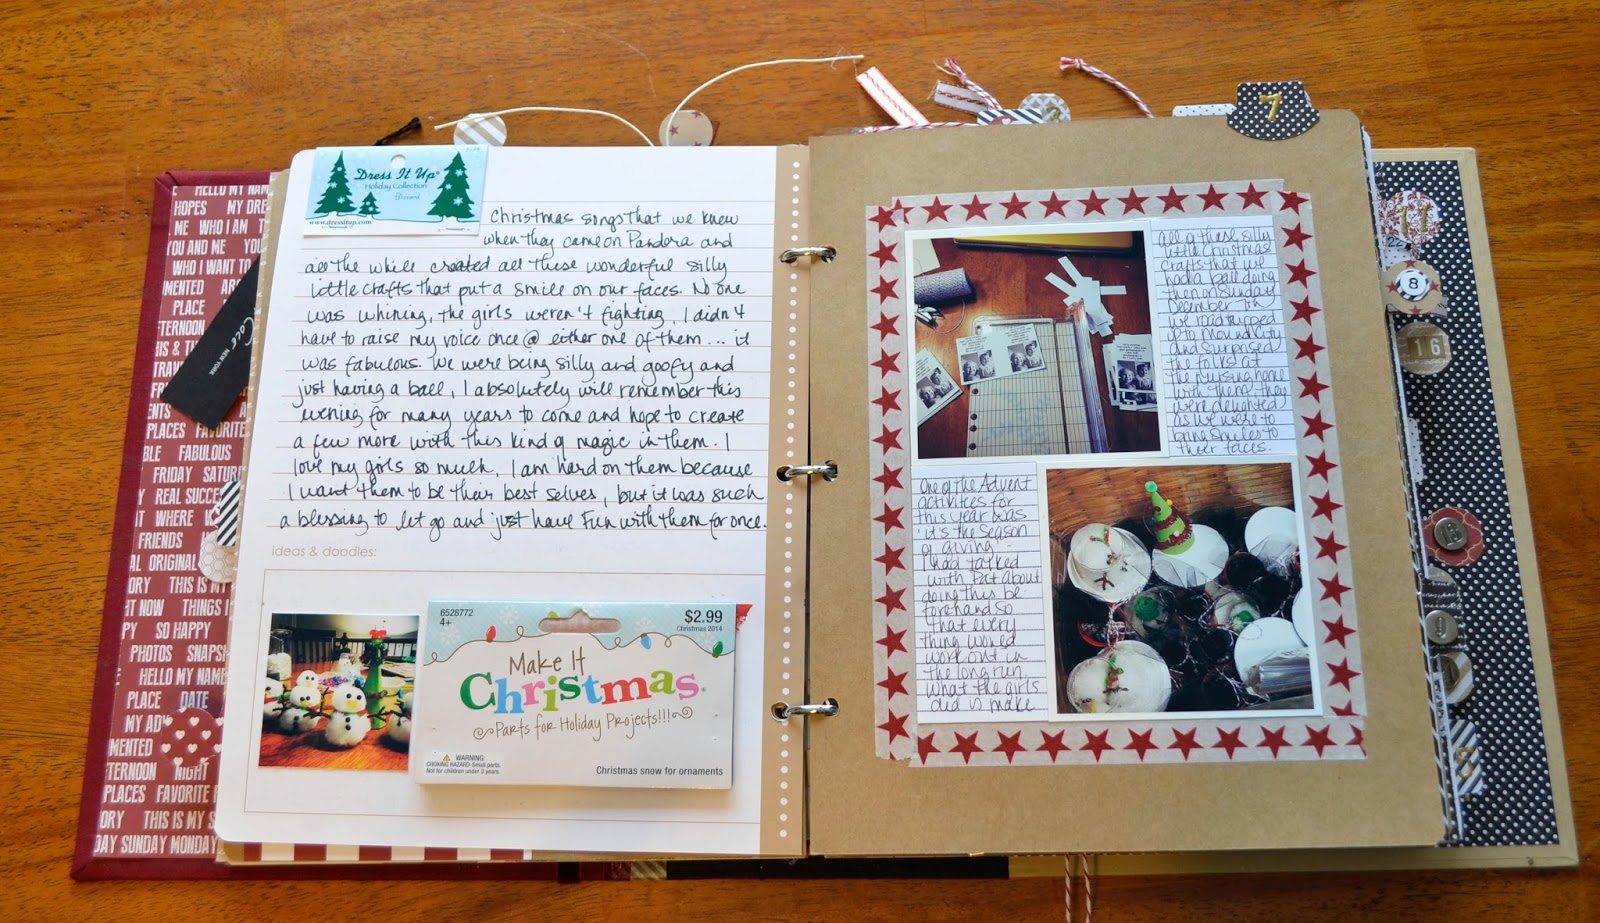 HELLO MY NAME
HOPES MY DRE
ME WHO I AM
YOU AND ME YOU
WHO I WANT TO
MENTED
PLACE
TERNOON
HIS &
TRAV
EVENTS
PLACES FAVORITE
FABULOUS
FRIDAY SATUR
REAL SUCC
WHERE
FRIENDS
ORIGINAL
ORY THIS IS MY
RIGHT NOW THINGS I
SO HAPPY
PHOTOS SNAPSH
HELLO MY NAME
PLACE DATE
MY AD
MENTED
TERNOON NIGHT
PLACES FAVORITE
ORY THIS IS MY S
DAY SUNDAY MONDAY
NEW YORK
Dress It Up®
Holiday Collection
Blizzard
www.dressitup.com
Christmas songs that we knew
when they came on Pandora and
all the while created all these wonderful silly
little crafts that put a smile on our faces. No one
was whining, the girls weren't fighting, I didn't
have to raise my voice once @ either one of them... it
was fabulous. We were being silly and goofy and
just having a ball, I absolutely will remember this
evening for many years to come and hope to create
a few more with this kind of magic in them. I
love my girls so much, I am hard on them because
I want them to be their best selves, but it was such
a blessing to let go and just have Fun with them for once.
ideas & doodles:
6528772
4+
$2.99
Christmas 2014
Make It
Christmas®
Parts for Holiday Projects!!!
WARNING:
CHOKING HAZARD-Small parts.
Not for children under 3 years.
Christmas snow for ornaments
7
all of these silly
little Christmas
crafts that we
had a ball doing
then on Sunday
December 7th
we road tripped
up to Mound City
and surprised
the folks at
the nursing home
with them. they
were delighted
as we were to
bring smiles to
their faces.
One of the Advent
activities for
this year was
it's the season
of giving -
I had talked
with Pat about
doing this be
forehand so
that every
thing would
work out in
the long run.
what the girls
did is make
11
22
8
16
18
9